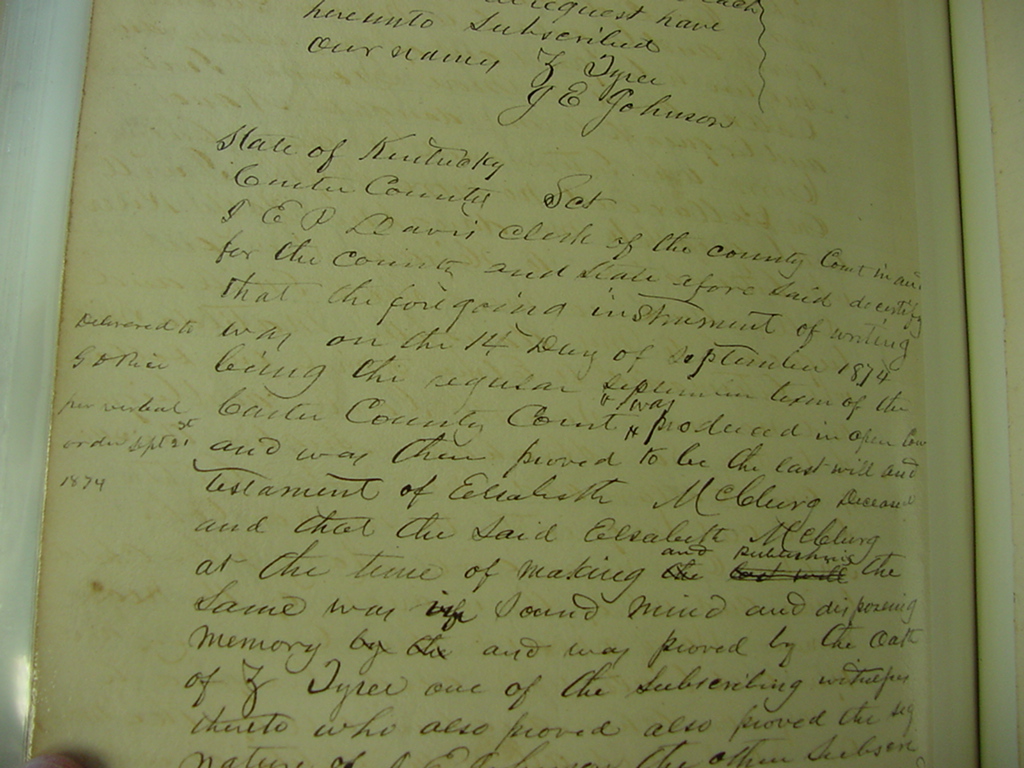 request have
hereunto Subscribed
our names Z Tyree
J E Johnson
State of Kentucky
Carter County Sct
I E P Davis clerk of the county Court in and
for the county and State afore said do certify
that the foregoing instrument of writing
was on the 14 Day of September 1874
being the regular term of the
& was
Carter County Court produced in open
and was then proved to be the last will and
Testament of Elsabeth McClurg Deceased
and that the Said Elsabeth McClurg
and publishing
at the time of making the last will the
Same was of Sound mind and disposing
Memory by the and was proved by the Oath
of Z Tyree one of the Subscribing witness
thereto who also proved also proved the sig
nature of J E Johnson the other Subscri
Delivered to
G D Rice
per verbal
order Sept 21st
1874